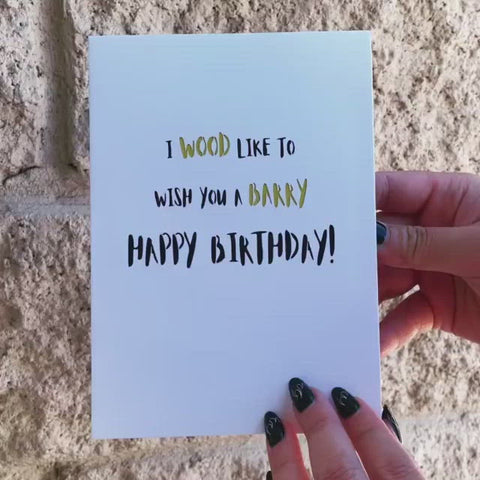 I WOOD LIKE TO
WISH YOU A BARRY
HAPPY BIRTHDAY!